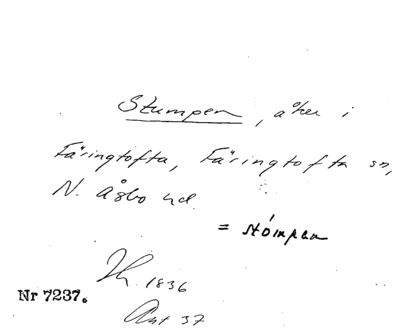 Stumpen, åker i
Färingtofta, Färingtofta sn,
N. Åsbo hd.
= stómpen
1836
Nr 7237.
37